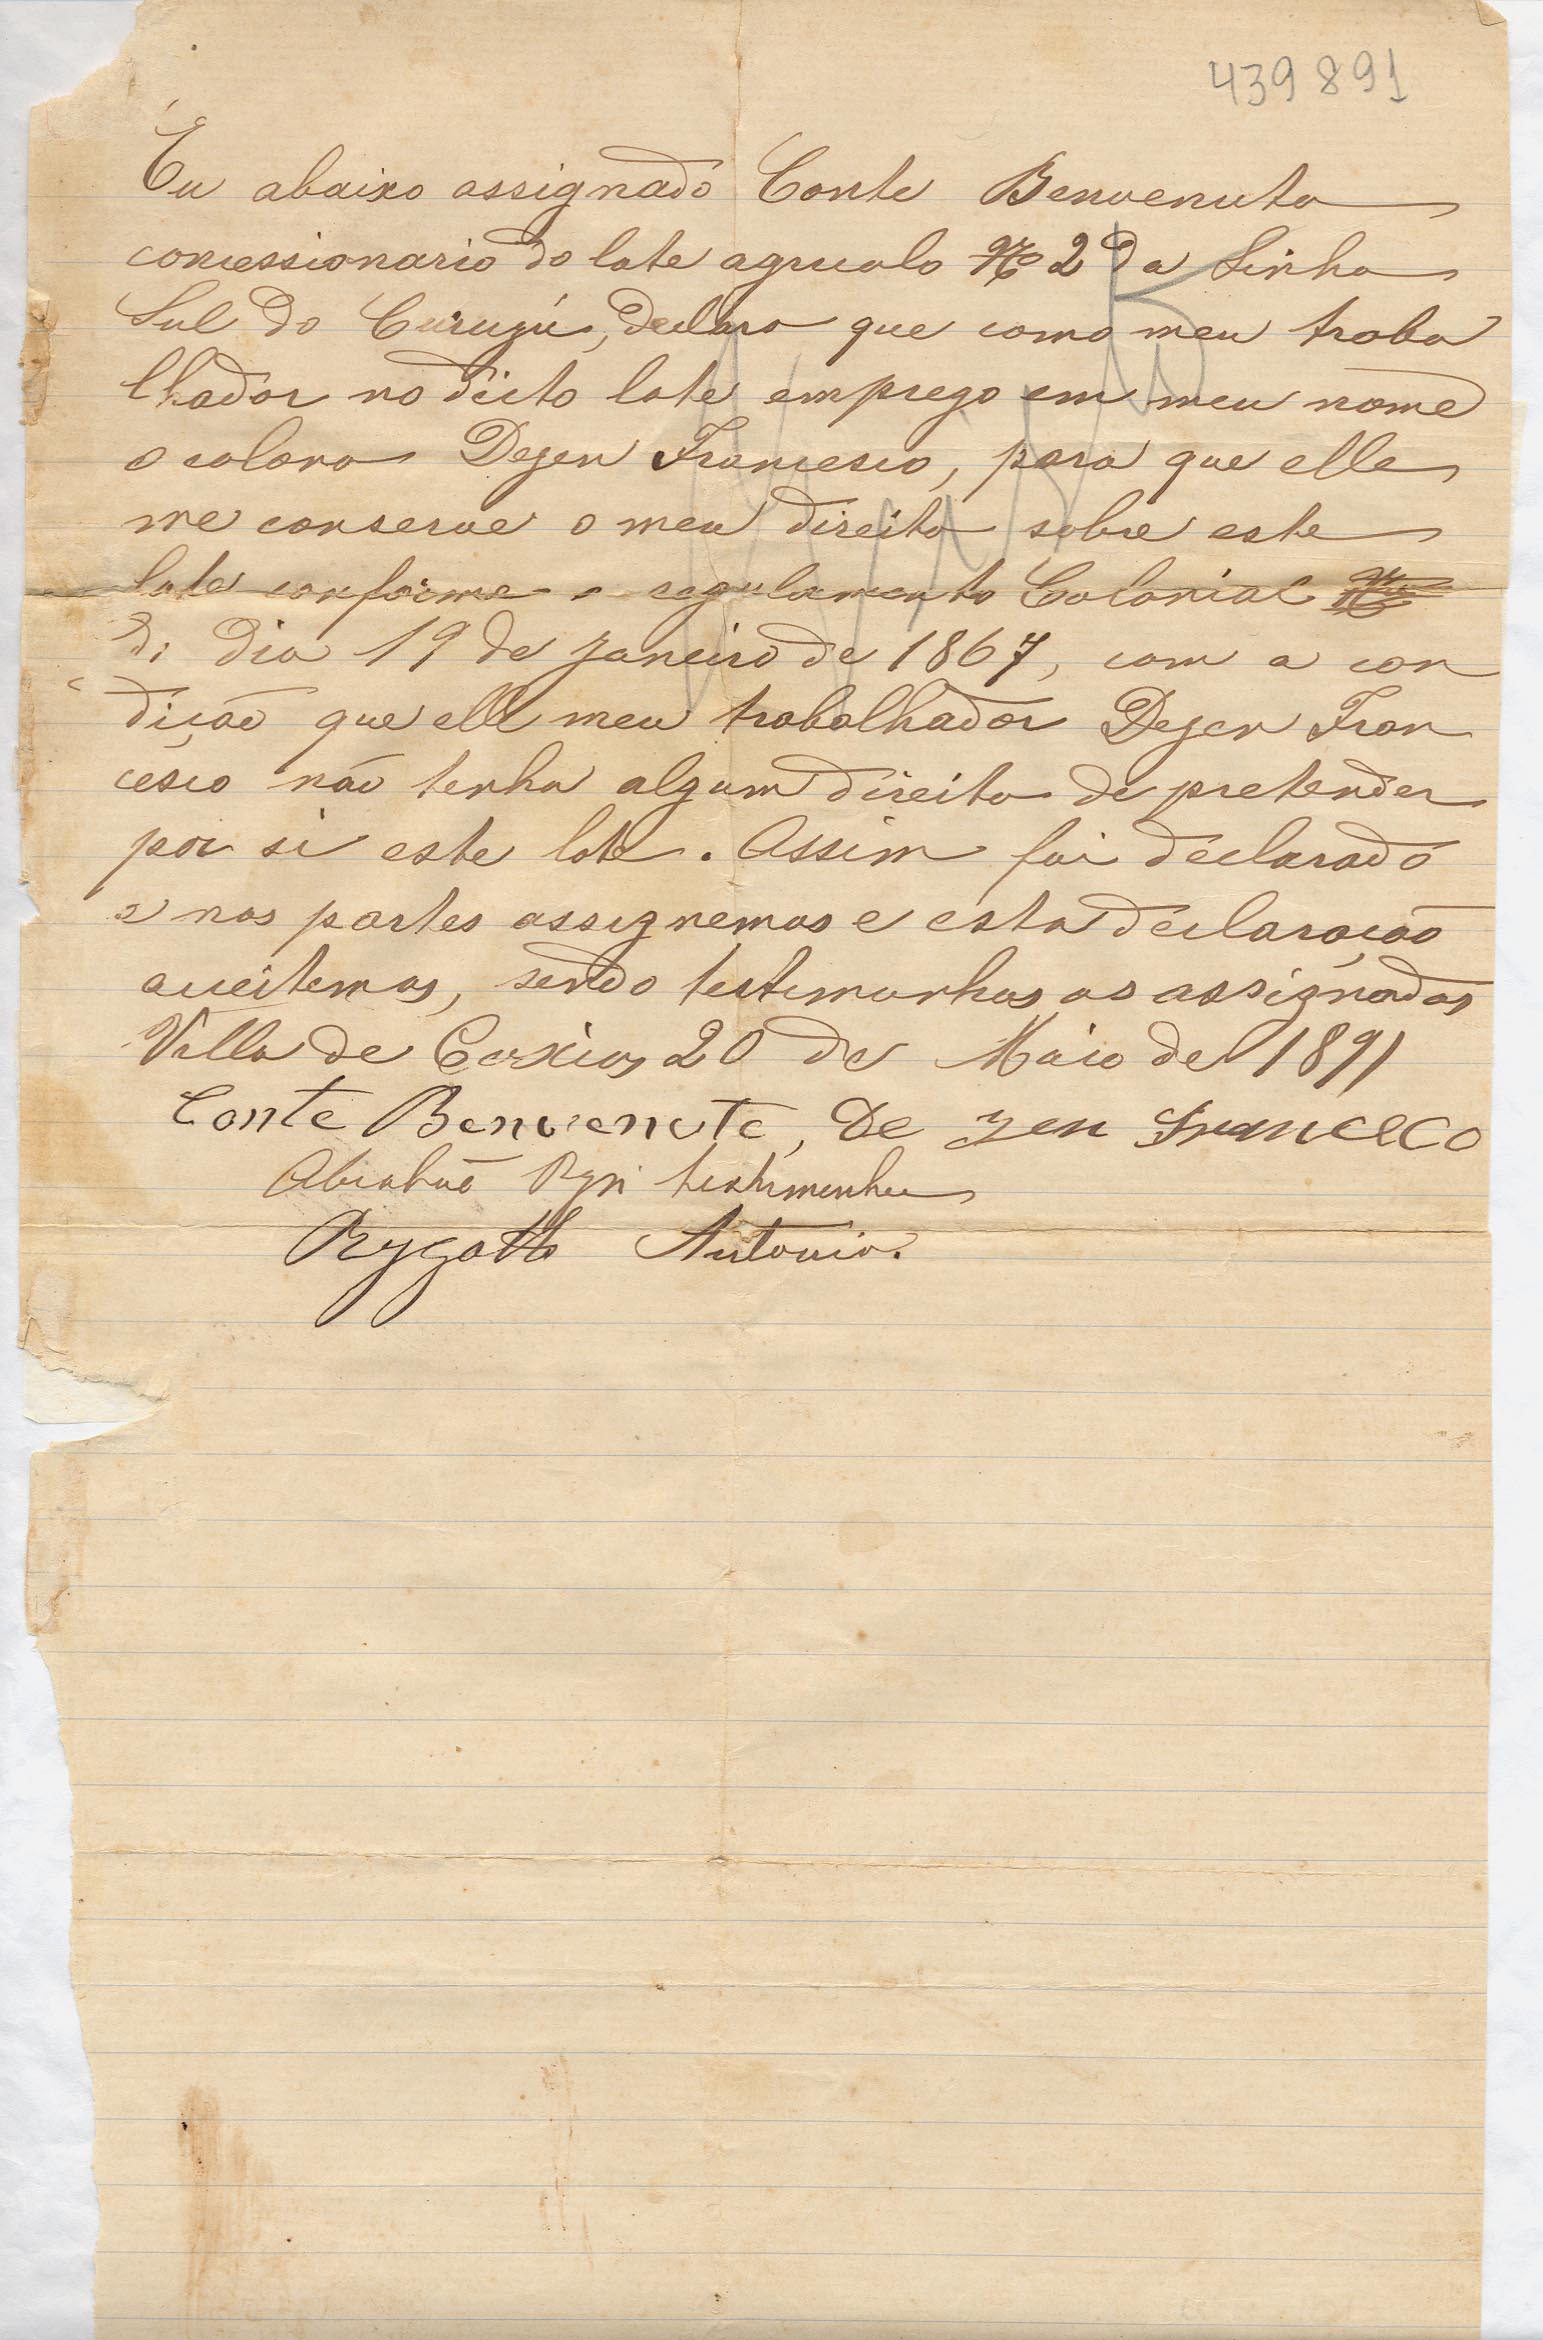 439891
Eu abaixo assignado Conte Benvenuto
concessionario do lote agricolo No 2 da Linha
Sul do Curuzú, declaro que como meu traba
lhador no dicto lote emprego em meu nome
o colono Dezen Francesco, para que elle
me conserve o meu direito sobre este
lote conforme o regulamento Colonial
di dia 19 de Janeiro de 1867, com a con
dição que elle meu trabalhador Dezen Fran
cesco não tenha algum direito de pretender
por si este lote. Assim foi declarado
e nos partes assignemos e esta declaração
aceitemos, sendo testimunhas os assignados
Villa de Caxias 20 de Maio de 1891
Conte Benvenuto, De zen Francesco
Abrahão testimunha
Antonio.